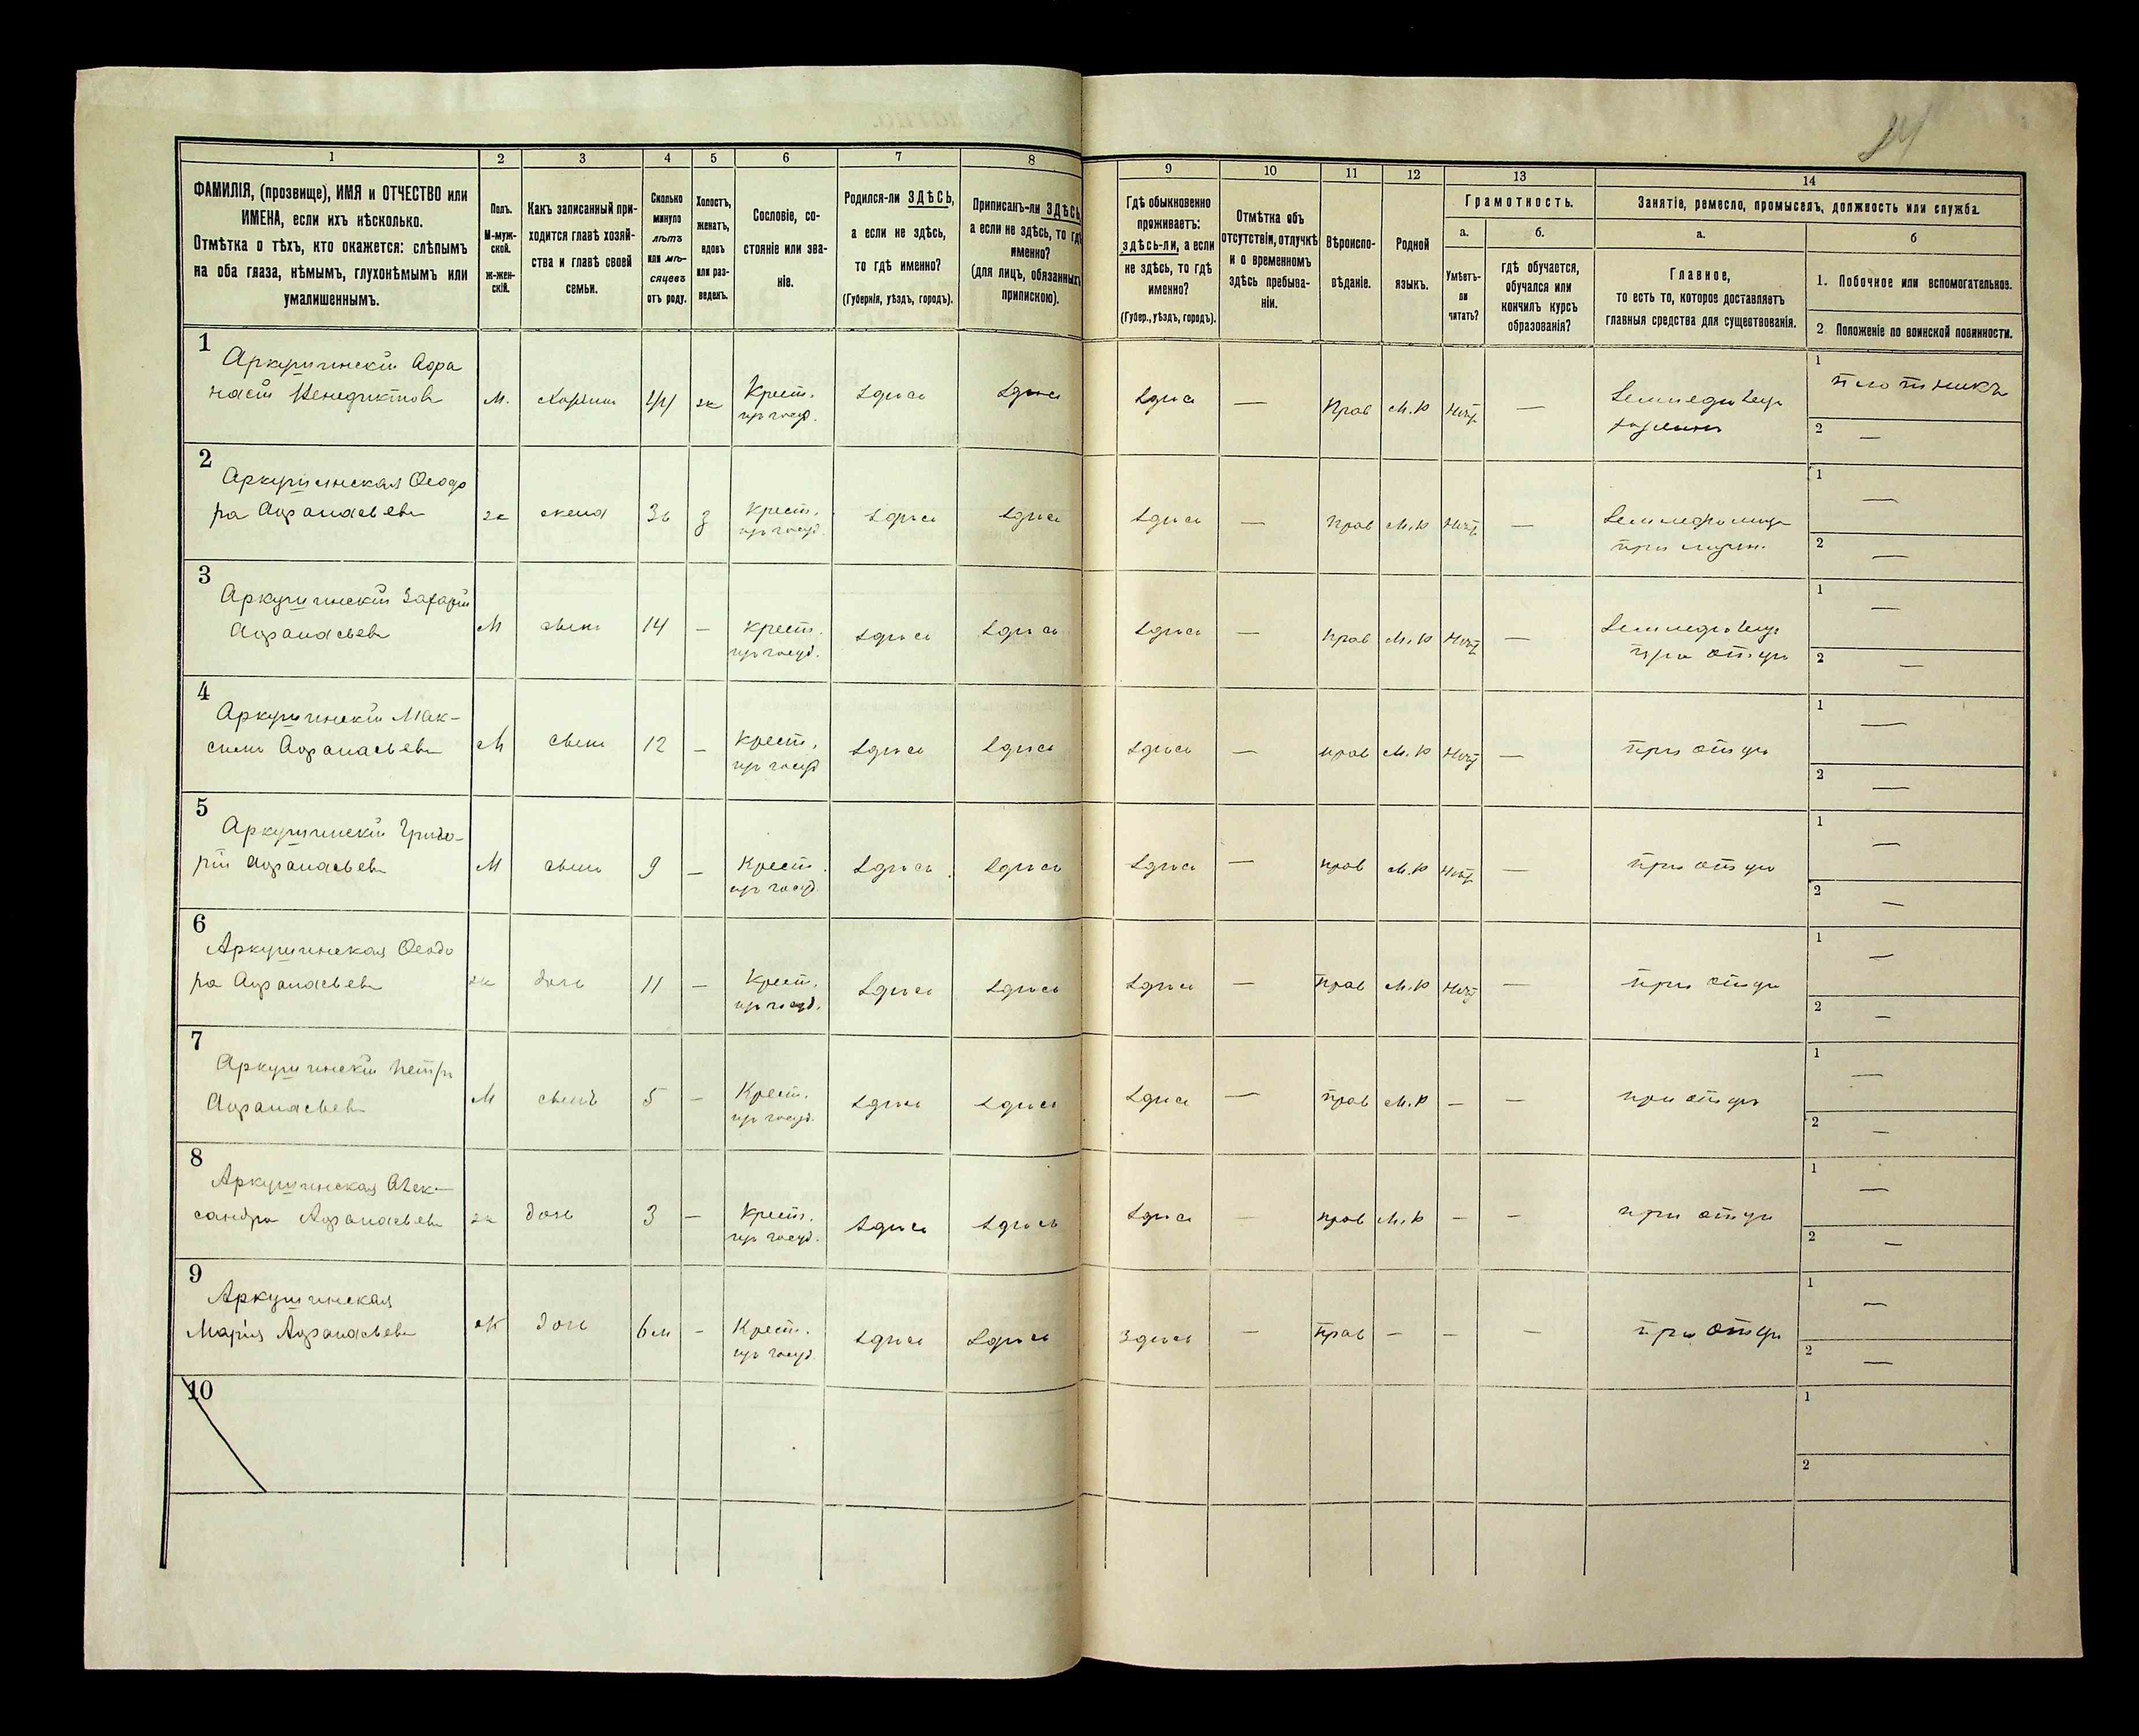 24
1
2
3
4
5
6
7
8
9
10
11
12
13
14
ФАМИЛІЯ, (прозвище), ИМЯ и ОТЧЕСТВО или
ИМЕНА, если ихъ нѣсколько.
Отмѣтка о тѣхъ, кто окажется: слѣпымъ
на оба глаза, нѣмымъ, глухонѣмымъ или
умалишеннымъ.
Полъ.
М-муж-
ской.
Ж-жен-
скій.
Какъ записанный при-
ходится главѣ хозяй-
ства и главѣ своей
семьи.
Сколько
минуло
лѣтъ
или мѣ-
сяцевъ
отъ роду.
Холостъ,
женатъ,
вдовъ
или раз-
веденъ.
Сословіе, со-
стояніе или зва-
ніе.
Родился-ли ЗДѢСЬ,
а если не здѣсь,
то гдѣ именно?
(Губернія, уѣздъ, городъ).
Приписанъ-ли ЗДѢСЬ,
а если не здѣсь, то гдѣ
именно?
(для лицъ, обязанныхъ
припискою).
Гдѣ обыкновенно
проживаетъ:
здѣсь-ли, а если
не здѣсь, то гдѣ
именно?
(Губер., уѣздъ, городъ).
Отмѣтка объ
отсутствіи, отлучкѣ
и о временномъ
здѣсь пребыва-
ніи.
Вѣроиспо-
вѣданіе.
Родной
языкъ.
Грамотность.
а.
Умѣетъ-
ли
читать?
б.
гдѣ обучается,
обучался или
кончилъ курсъ
образованія?
Занятіе, ремесло, промыселъ, должность или служба.
а.
Главное,
то есть то, которое доставляетъ
главныя средства для существованія.
б
1. Побочное или вспомогательное.
2 Положеніе по воинской повинности.
1
Аркушинскій Афа
насій Венедиктовъ
М. хозяинъ 44 ж Крест. Здѣсь Здѣсь Здѣсь — Прав М.Р Нѣтъ — 1 плотникъ
изъ госуд. 2 —
2
Аркушинская Ѳеодо
ра Афанасьева
ж жена 36 з Крест. Здѣсь Здѣсь Здѣсь — Прав М.Р Нѣтъ — 1 —
изъ госуд. 2 —
3
Аркушинскій Захарій
Афанасьевъ
М сынъ 14 — Крест. Здѣсь Здѣсь Здѣсь — Прав М.Р Нѣтъ — 1 —
изъ госуд. при отцѣ 2 —
4
Аркушинскій Мак-
симъ Афанасьевъ
М сынъ 12 — Крест. Здѣсь Здѣсь Здѣсь — Прав М.Р Нѣтъ — при отцѣ 1 —
изъ госуд 2 —
5
Аркушинскій Григо-
рій Афанасьевъ
М сынъ 9 — Крест. Здѣсь Здѣсь Здѣсь — Прав М.Р Нѣтъ — при отцѣ 1 —
изъ госуд. 2 —
6
Аркушинская Ѳеодо
ра Афанасьева
ж дочь 11 — Крест. Здѣсь Здѣсь Здѣсь — Прав М.Р Нѣтъ — при отцѣ 1 —
изъ госуд. 2 —
7
Аркушинскій Петръ
Афанасьевъ
М сынъ 5 — Крест. Здѣсь Здѣсь Здѣсь — Прав М.Р — — при отцѣ 1 —
изъ госуд. 2 —
8
Аркушинская Алек-
сандра Афанасьева
ж дочь 3 — Крест. Здѣсь Здѣсь Здѣсь — Прав М.Р — — при отцѣ 1 —
изъ госуд. 2 —
9
Аркушинская
Марія Афанасьева
ж дочь 6 м — Крест. Здѣсь Здѣсь Здѣсь — Прав — — — при отцѣ 1 —
изъ госуд. 2 —
10
1
2